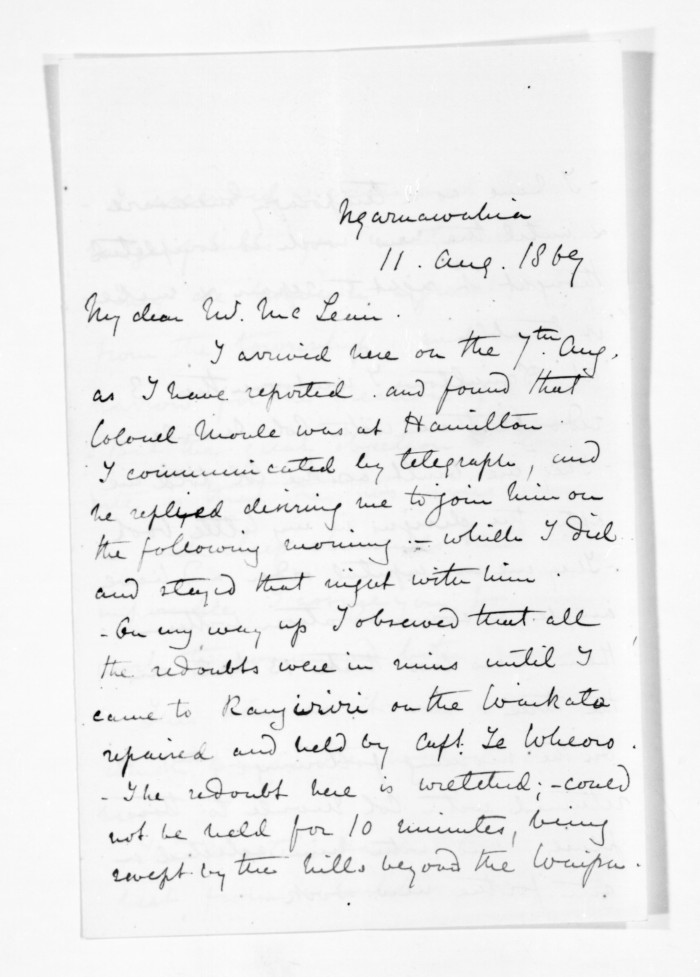 Ngaruawahia
11. Aug. 1869
My dear Mr. McLean.
I arrived here on the 7th. Aug.
as I have reported. and found that
Colonel Moule was at Hamilton
I communicated by telegraph, and
he replied desiring me to join him on
the following morning :- which I did
and stayed that night with him.
- On my way up I observed that all
the redoubts were in ruins until I
came to Rangiriri on the Waikato
repaired and held by Capt. Te Wheoro.
- The redoubt here is wretched; - could
not be held for 10 minutes, being
swept by the hills beyond the Waipa.